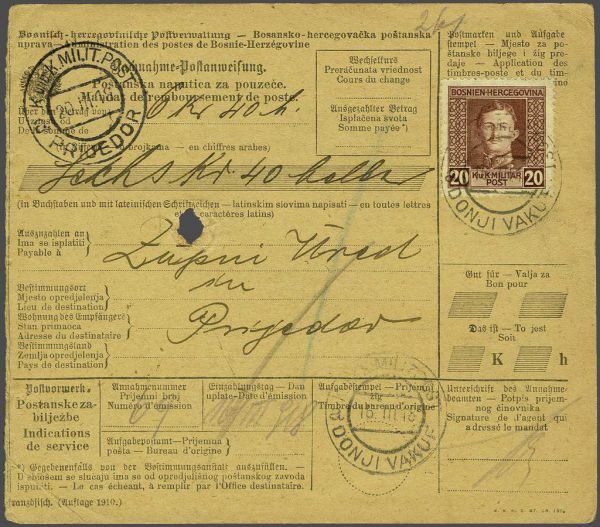 Bosnisch-hercegovinische Postverwaltung — Bosansko-hercegovačka poštanska
uprava — Administration des postes de Bosnie-Herzégovine
Nachnahme-Postanweisung.
Poštanska naputnica za pouzeće.
Mandat de remboursement de poste.
Wechselkurs
Preračunata vriednost
Cours du change
Ausgezahlter Betrag
Isplaćena svota
Somme payée*)
Postmarken und Aufgabe
stempel — Mjesto za po-
štansko biljege i žig pre-
daje — Application des
timbres-poste et du tim-
BOSNIEN-HERCEGOVINA
20 K.u.K. MILITÄR POST 20
K.u.K. MILIT. POST
PRIJEDOR
DONJI VAKUF
6 Kr 40 h
brojkama — en chiffres arabes)
sechs Kr. 40 heller
(in Buchstaben und mit lateinischen Schriftzeichen — latinskim slovima napisati — en toutes lettres
et en caractères latins)
Auszuzahlen an
Ima se isplatiti
Payable à
Župni Ured
u
Prijedor
Bestimmungsort
Mjesto opredjeljenja
Lieu de destination
Wohnung des Empfängers
Stan primaoca
Adresse du destinataire
Bestimmungsland
Zemlja opredjeljenja
Pays de destination
Gut für — Valja za
Bon pour
Das ist — To jest
Soit
K h
Postvermerk-
Poštanske za-
bilježbe
Indications
de service
Annahmenummer
Primjeni broj
Numéro d'émission
Einzahlungstag — Dan
uplate-Date d'émission
Aufgabepostamt — Prijemna
pošta — Bureau d'origine
Aufgabestempel — Prijemni
žig
Timbre du bureau d'origine
DONJI VAKUF
Unterschrift des Annahme-
beamten — Potpis prijem-
nog činovnika
Signature de l'agent qui
a dressé le mandat
*) Gegebenenfalls von der Bestimmungsanstalt auszufüllen. —
U obšiem se slučaju ima od opredjeljnog poštanskog zavoda
ispuniti — Le cas échéant, à remplir par l'Office destinataire.
französisch. (Auflage 1910.)